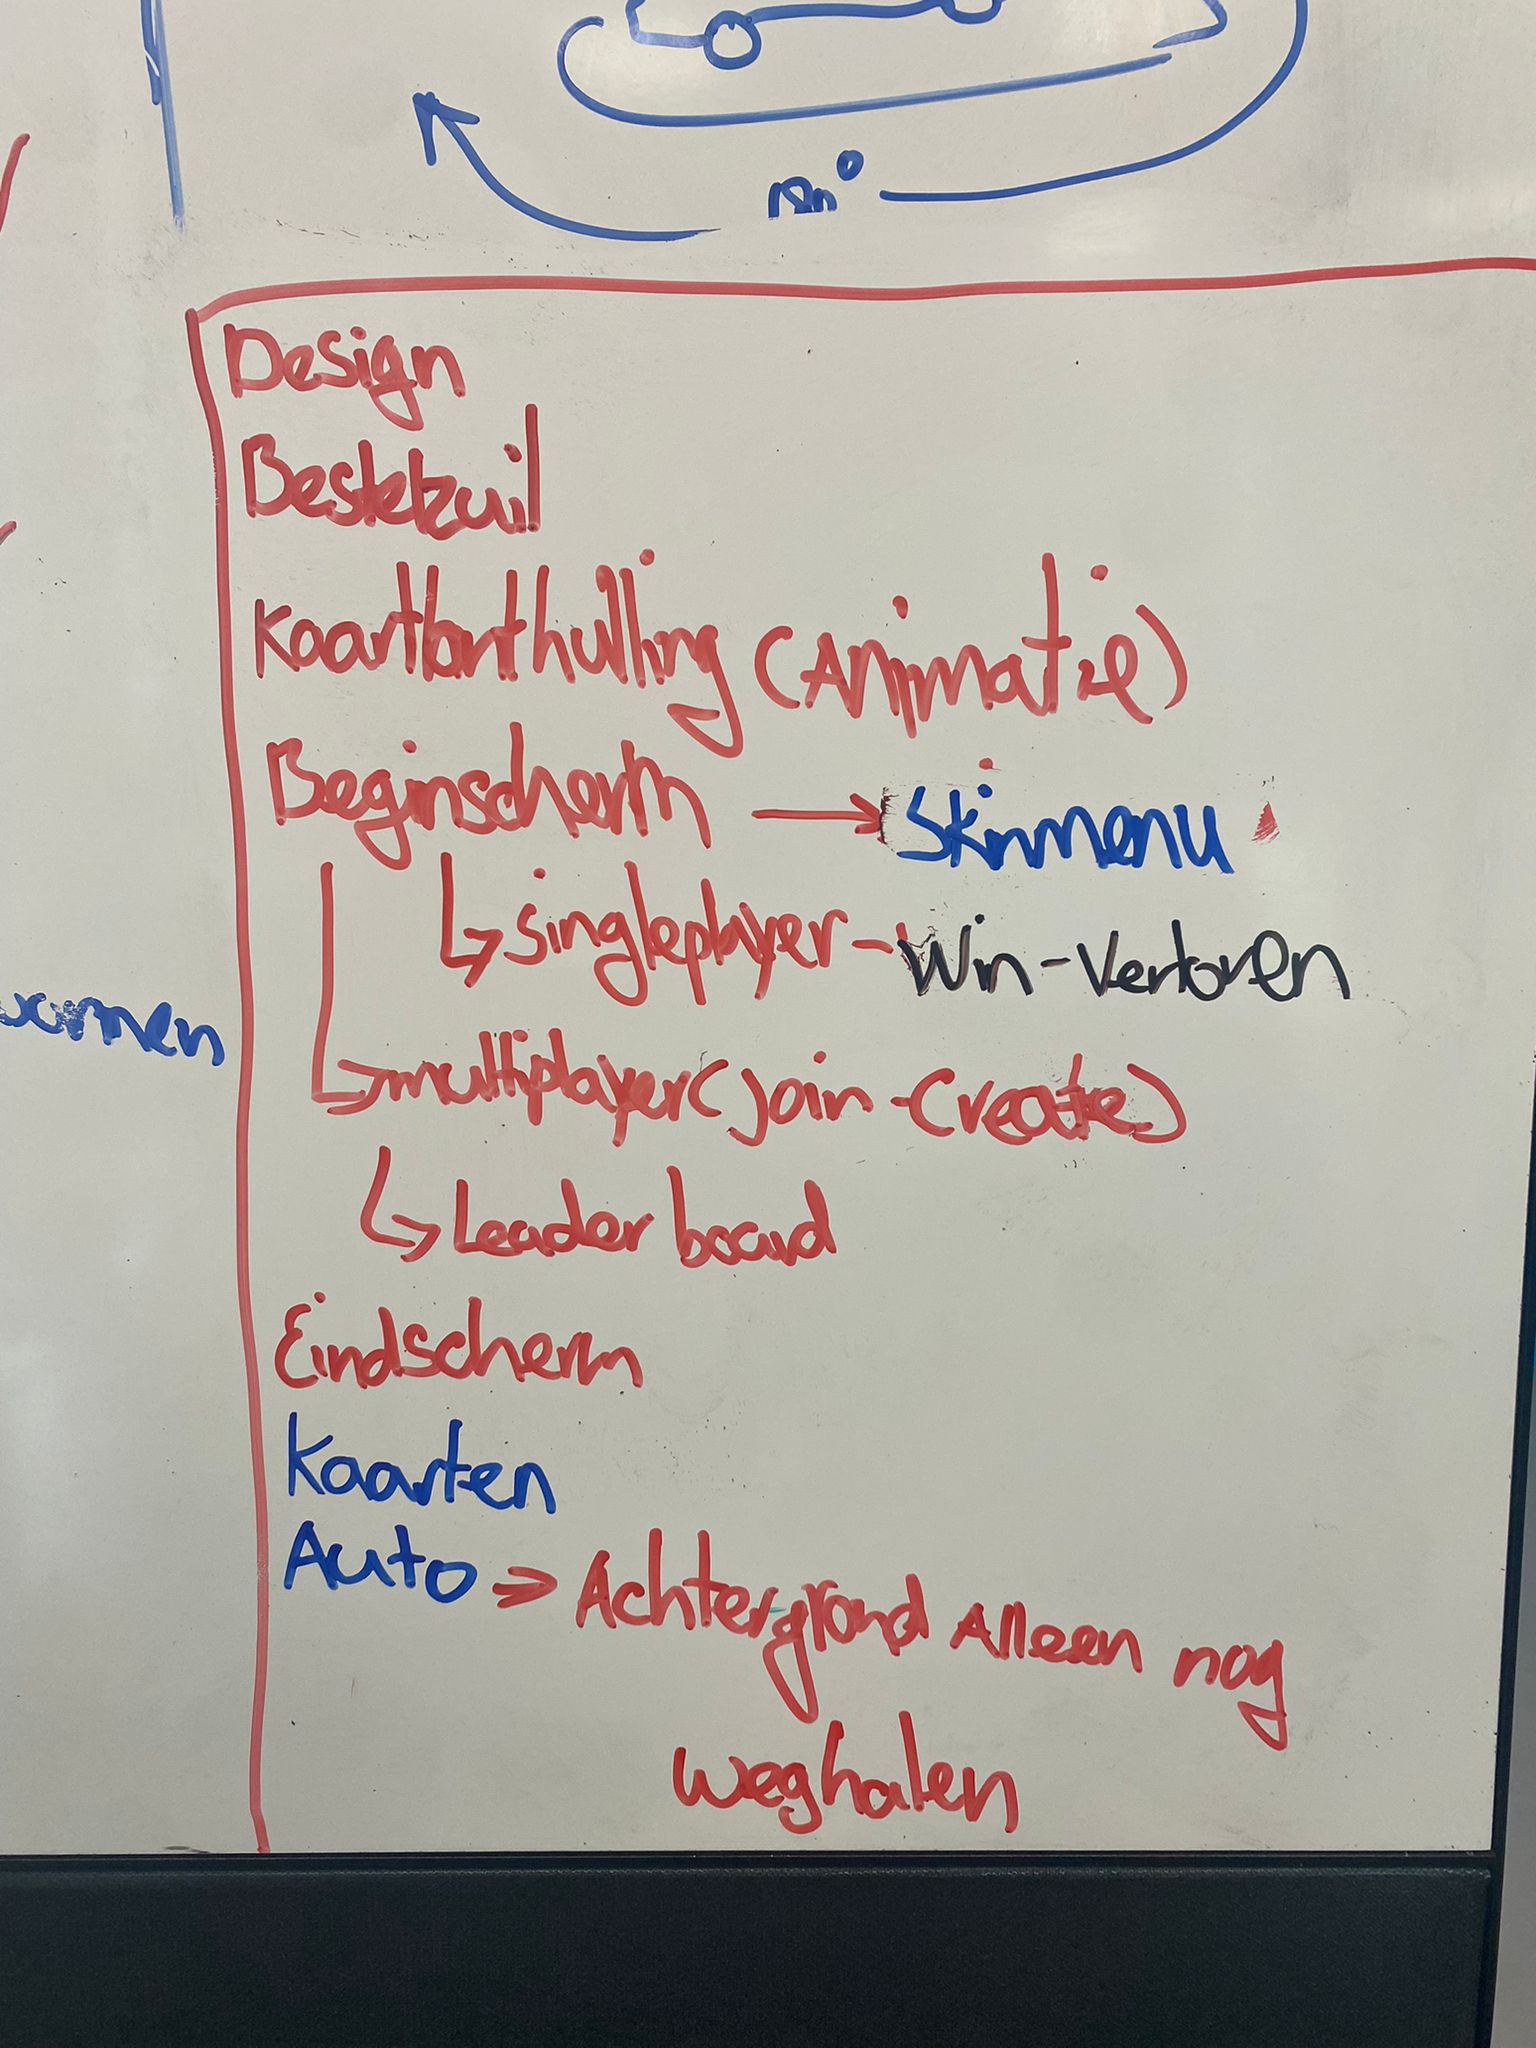 Design
Bestelzuil
Kaartonthulling (Animatie)
Beginscherm → Skinmenu
↳ singleplayer - Win - Verloren
↳ multiplayer (Join - Create)
↳ Leader board
Eindscherm
Kaarten
Auto → Achtergrond Alleen nog
weghalen